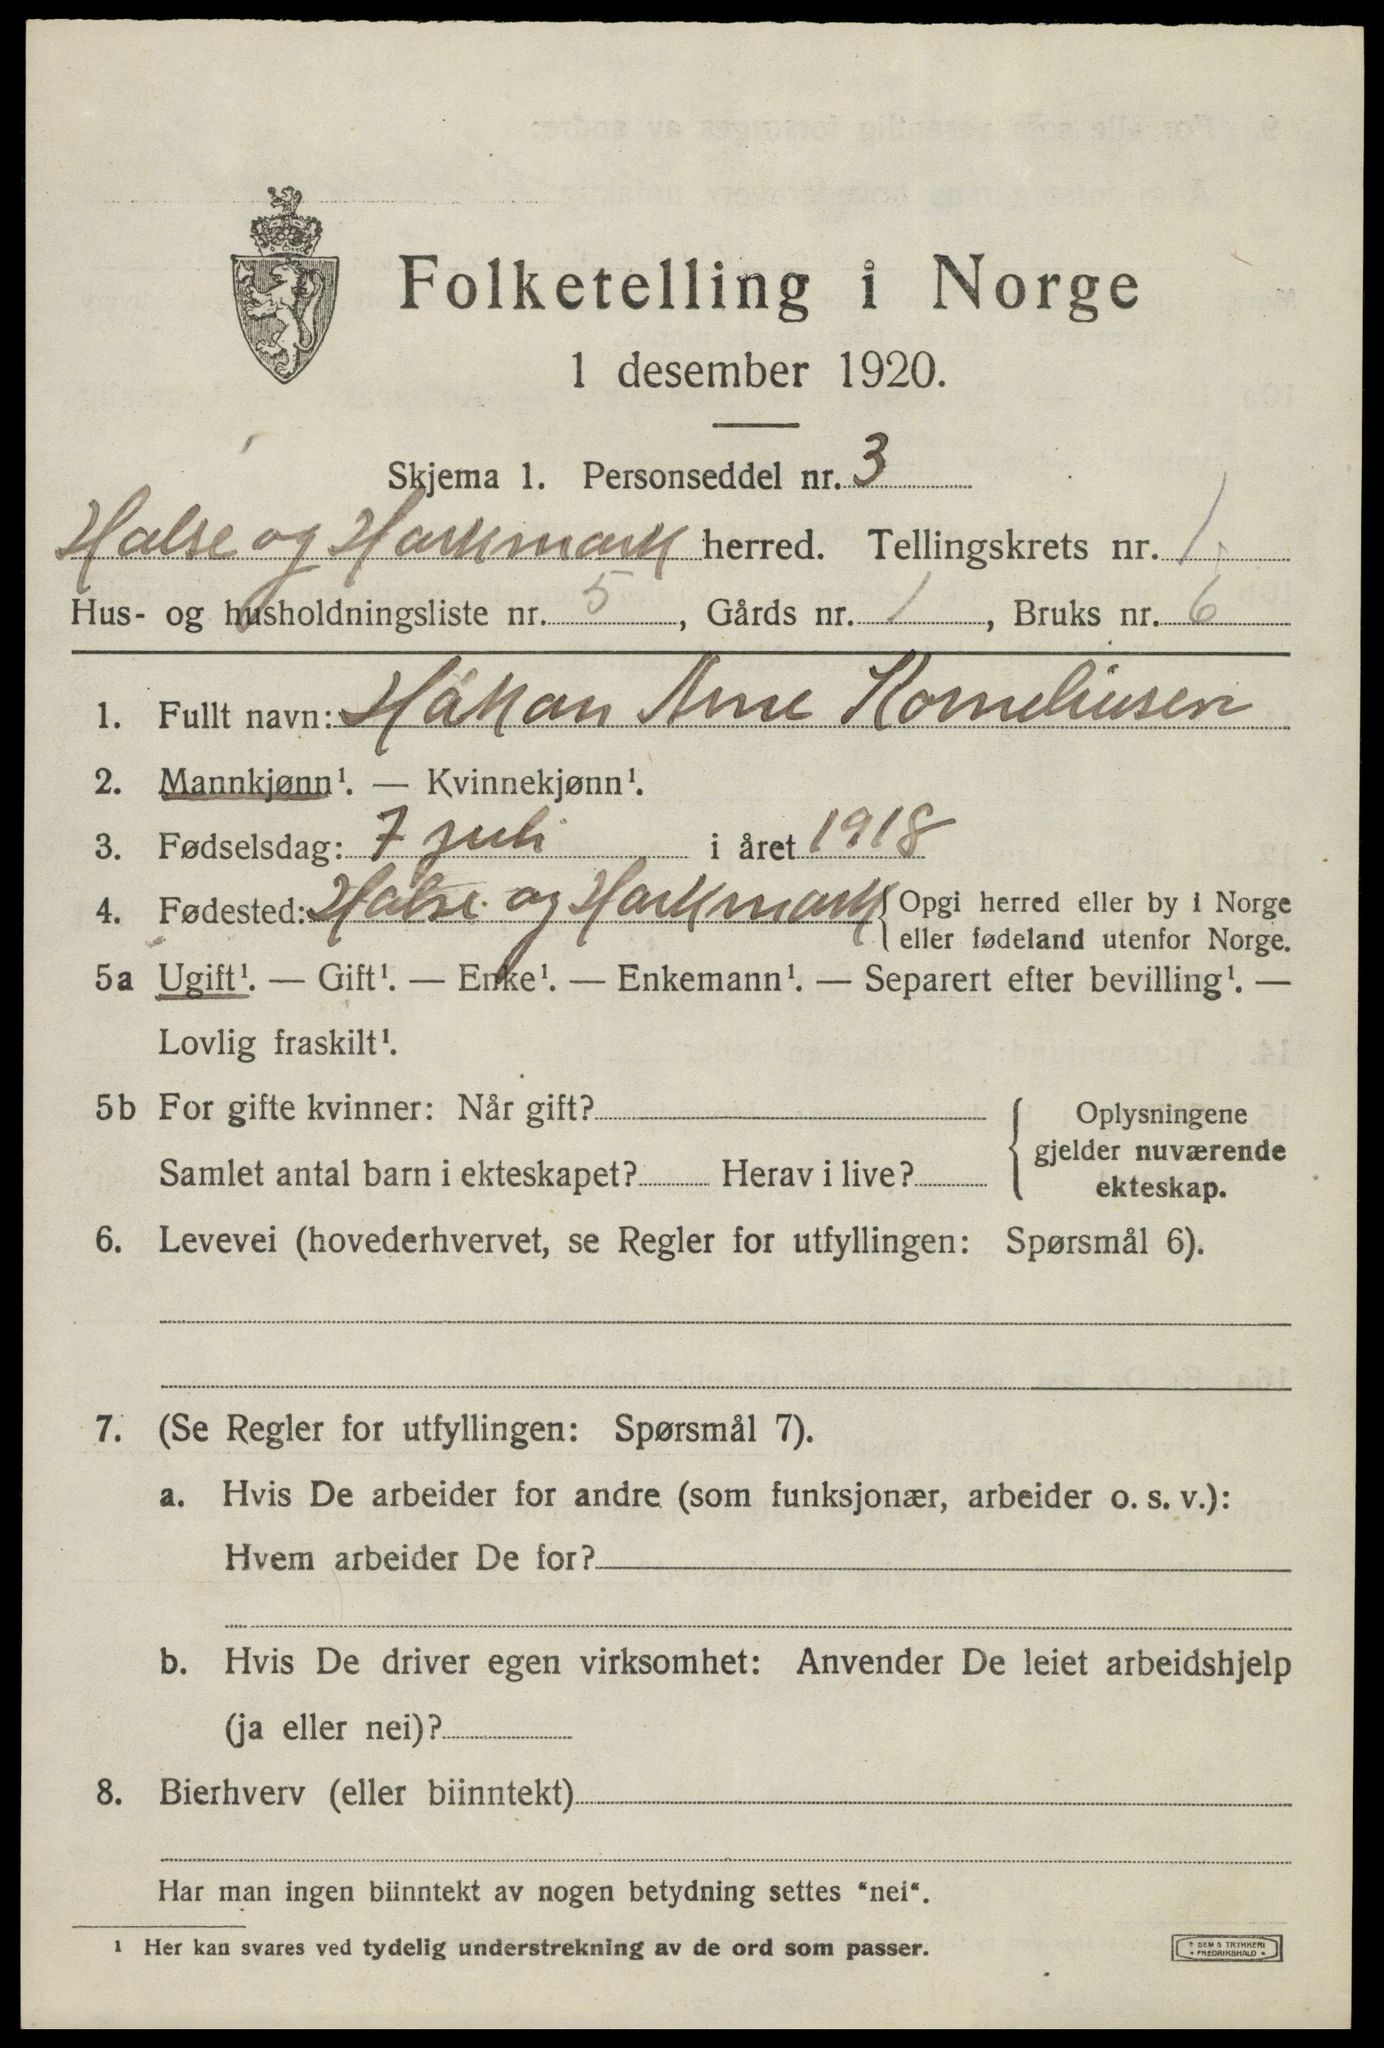 Folketelling i Norge
1 desember 1920.
Skjema 1. Personseddel nr. 3
Halse og Harkmark herred. Tellingskrets nr. 1
Hus- og husholdningsliste nr. 5, Gårds nr. 1, Bruks nr. 6
1. Fullt navn: Håkon Arne Korneliusen
2. Mannkjønn¹. — Kvinnekjønn¹.
3. Fødselsdag: 7 juli i året 1918
4. Fødested: Halse og Harkmark { Opgi herred eller by i Norge
eller fødeland utenfor Norge.
5a Ugift¹. — Gift¹. — Enke¹. — Enkemann¹. — Separert efter bevilling¹. —
Lovlig fraskilt¹.
5b For gifte kvinner: Når gift? { Oplysningene
gjelder nuværende
Samlet antal barn i ekteskapet? Herav i live? ekteskap.
6. Levevei (hovederhvervet, se Regler for utfyllingen: Spørsmål 6).
7. (Se Regler for utfyllingen: Spørsmål 7).
a. Hvis De arbeider for andre (som funksjonær, arbeider o. s. v.):
Hvem arbeider De for?
b. Hvis De driver egen virksomhet: Anvender De leiet arbeidshjelp
(ja eller nei)?
8. Bierhverv (eller biinntekt)
Har man ingen biinntekt av nogen betydning settes "nei".
¹ Her kan svares ved tydelig understrekning av de ord som passer.
SEM S TRYKKERI
FREDRIKSHALD